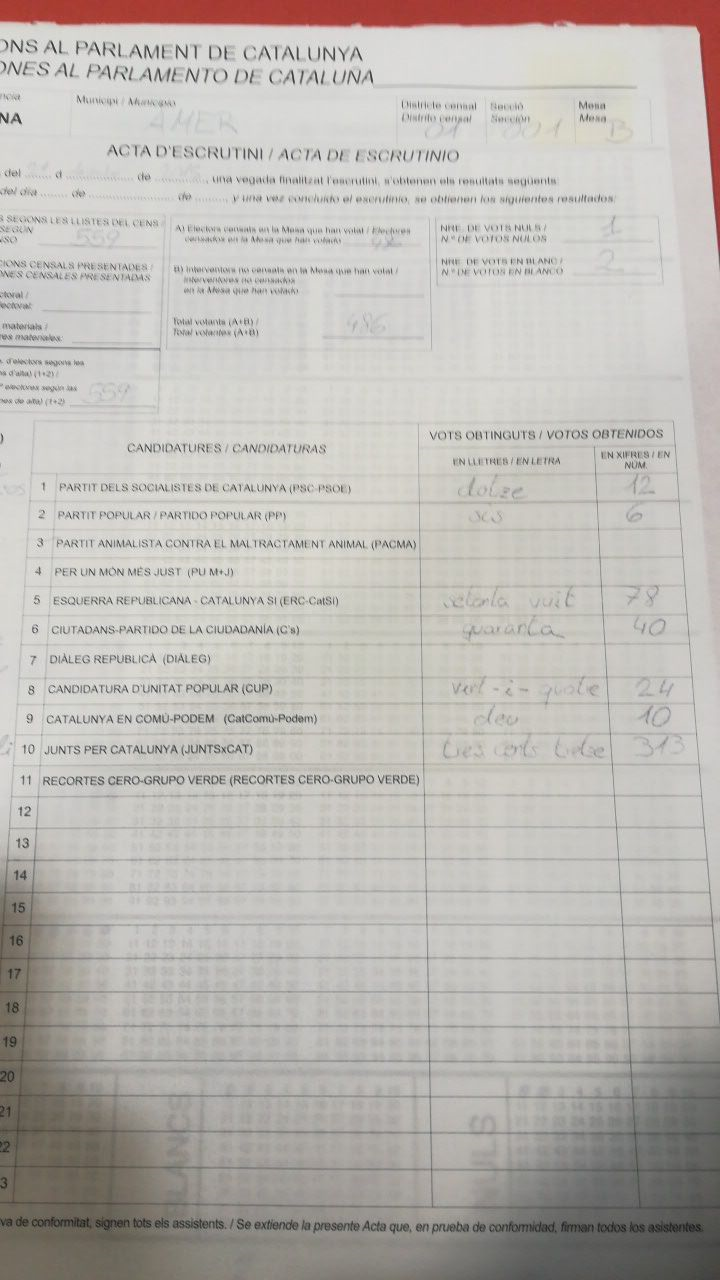 ONS AL PARLAMENT DE CATALUNYA
ONES AL PARLAMENTO DE CATALUÑA
ncia Municipi / Municipio Districte censal Secció Mesa
NA AMER Distrito censal 01 Sección 001 Mesa B
ACTA D'ESCRUTINI / ACTA DE ESCRUTINIO
del 21 d de, una vegada finalitzat l'escrutini, s'obtenen els resultats següents:
del día de de, y una vez concluido el escrutinio, se obtienen los siguientes resultados:
S SEGONS LES LLISTES DEL CENS /
SEGÚN
NSO 559
A) Electors censats en la Mesa que han votat / Electores
censados en la Mesa que han votado 486
NRE. DE VOTS NULS / 1
N.º DE VOTOS NULOS
CIONS CENSALS PRESENTADES /
ONES CENSALES PRESENTADAS
B) Interventors no censats en la Mesa que han votat /
Interventores no censados
en la Mesa que han votado
NRE. DE VOTS EN BLANC / 2
N.º DE VOTOS EN BLANCO
ctoral /
lectoral:
materials /
res materiales:
Total votants (A+B) / 486
Total votantes (A+B)
. d'electors segons les
s d'alta) (1+2) /
º electores según las
nes de alta) (1+2) 559
CANDIDATURES / CANDIDATURAS VOTS OBTINGUTS / VOTOS OBTENIDOS
EN LLETRES / EN LETRA EN XIFRES / EN NÚM.
1 PARTIT DELS SOCIALISTES DE CATALUNYA (PSC-PSOE) dotze 12
2 PARTIT POPULAR / PARTIDO POPULAR (PP) sis 6
3 PARTIT ANIMALISTA CONTRA EL MALTRACTAMENT ANIMAL (PACMA)
4 PER UN MÓN MÉS JUST (PU M+J)
5 ESQUERRA REPUBLICANA - CATALUNYA SI (ERC-CatSí) setanta vuit 78
6 CIUTADANS-PARTIDO DE LA CIUDADANÍA (C's) quaranta 40
7 DIÀLEG REPUBLICÀ (DIÀLEG)
8 CANDIDATURA D'UNITAT POPULAR (CUP) vint-i-quatre 24
9 CATALUNYA EN COMÚ-PODEM (CatComú-Podem) deu 10
10 JUNTS PER CATALUNYA (JUNTSxCAT) tres cents tretze 313
11 RECORTES CERO-GRUPO VERDE (RECORTES CERO-GRUPO VERDE)
12
13
14
15
16
17
18
19
20
21
22
3
va de conformitat, signen tots els assistents. / Se extiende la presente Acta que, en prueba de conformidad, firman todos los asistentes.